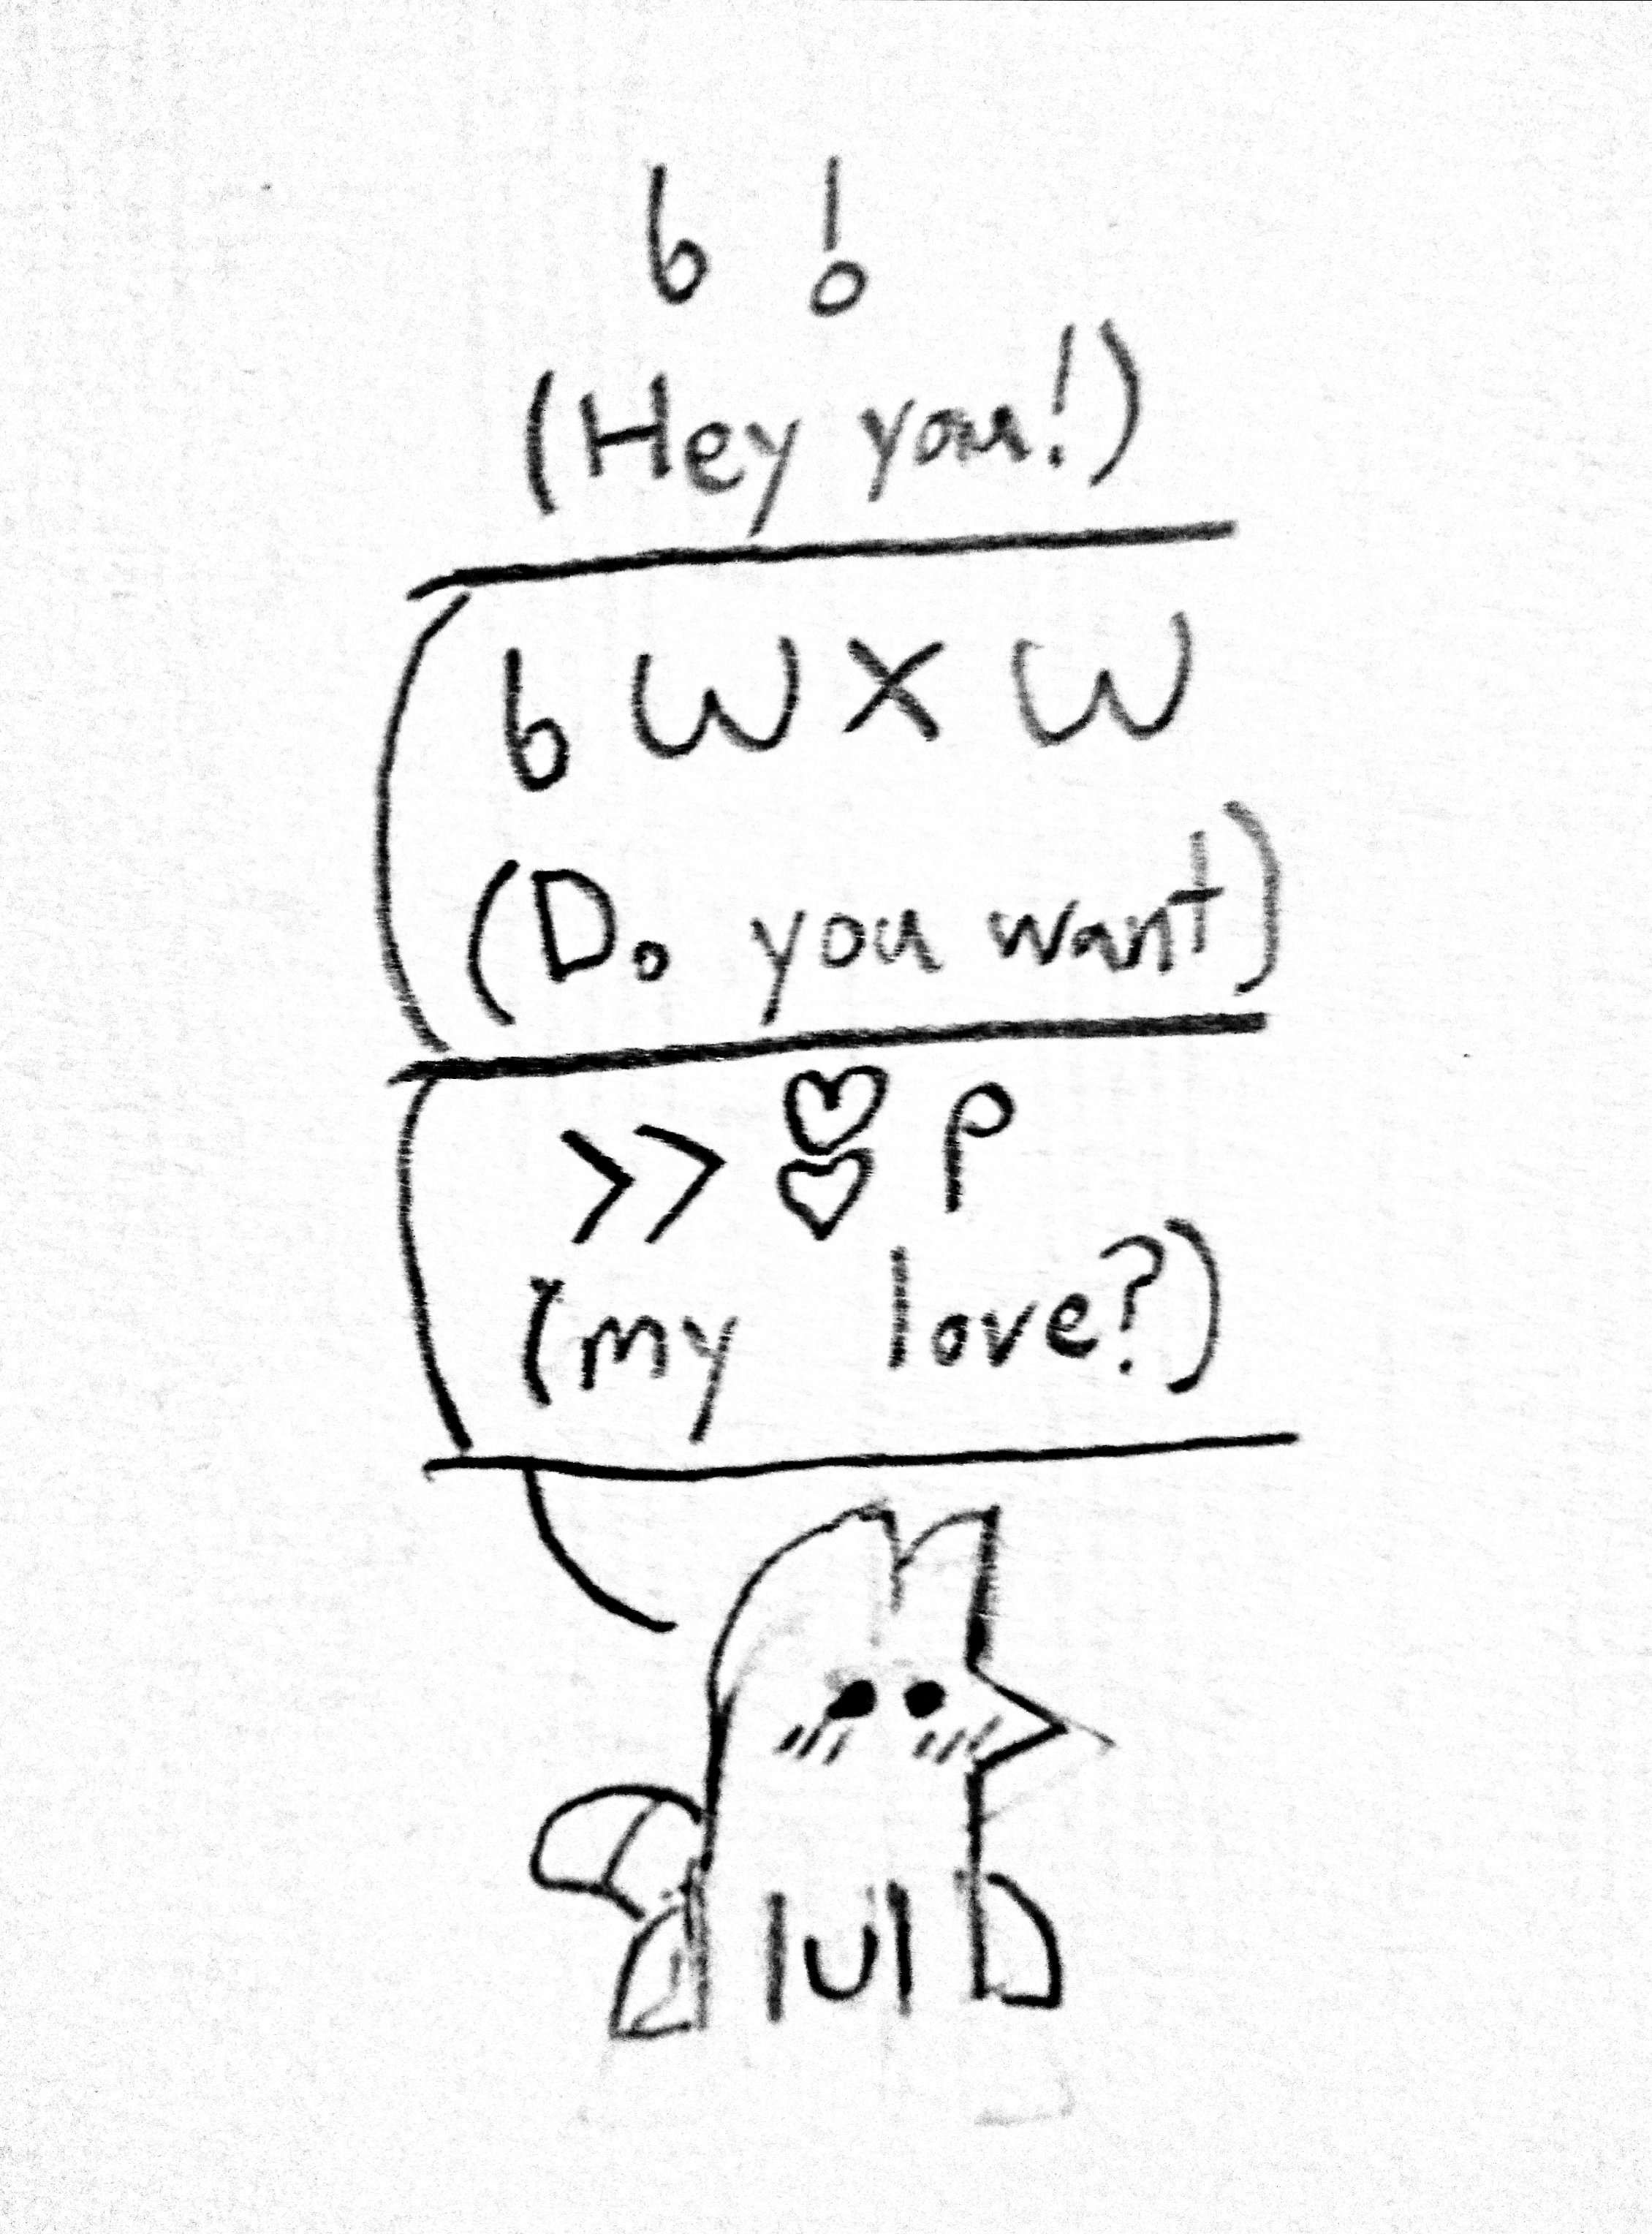 b !
(Hey you!)
b W X W
(Do you want)
>> ♡♡ P
(my love?)